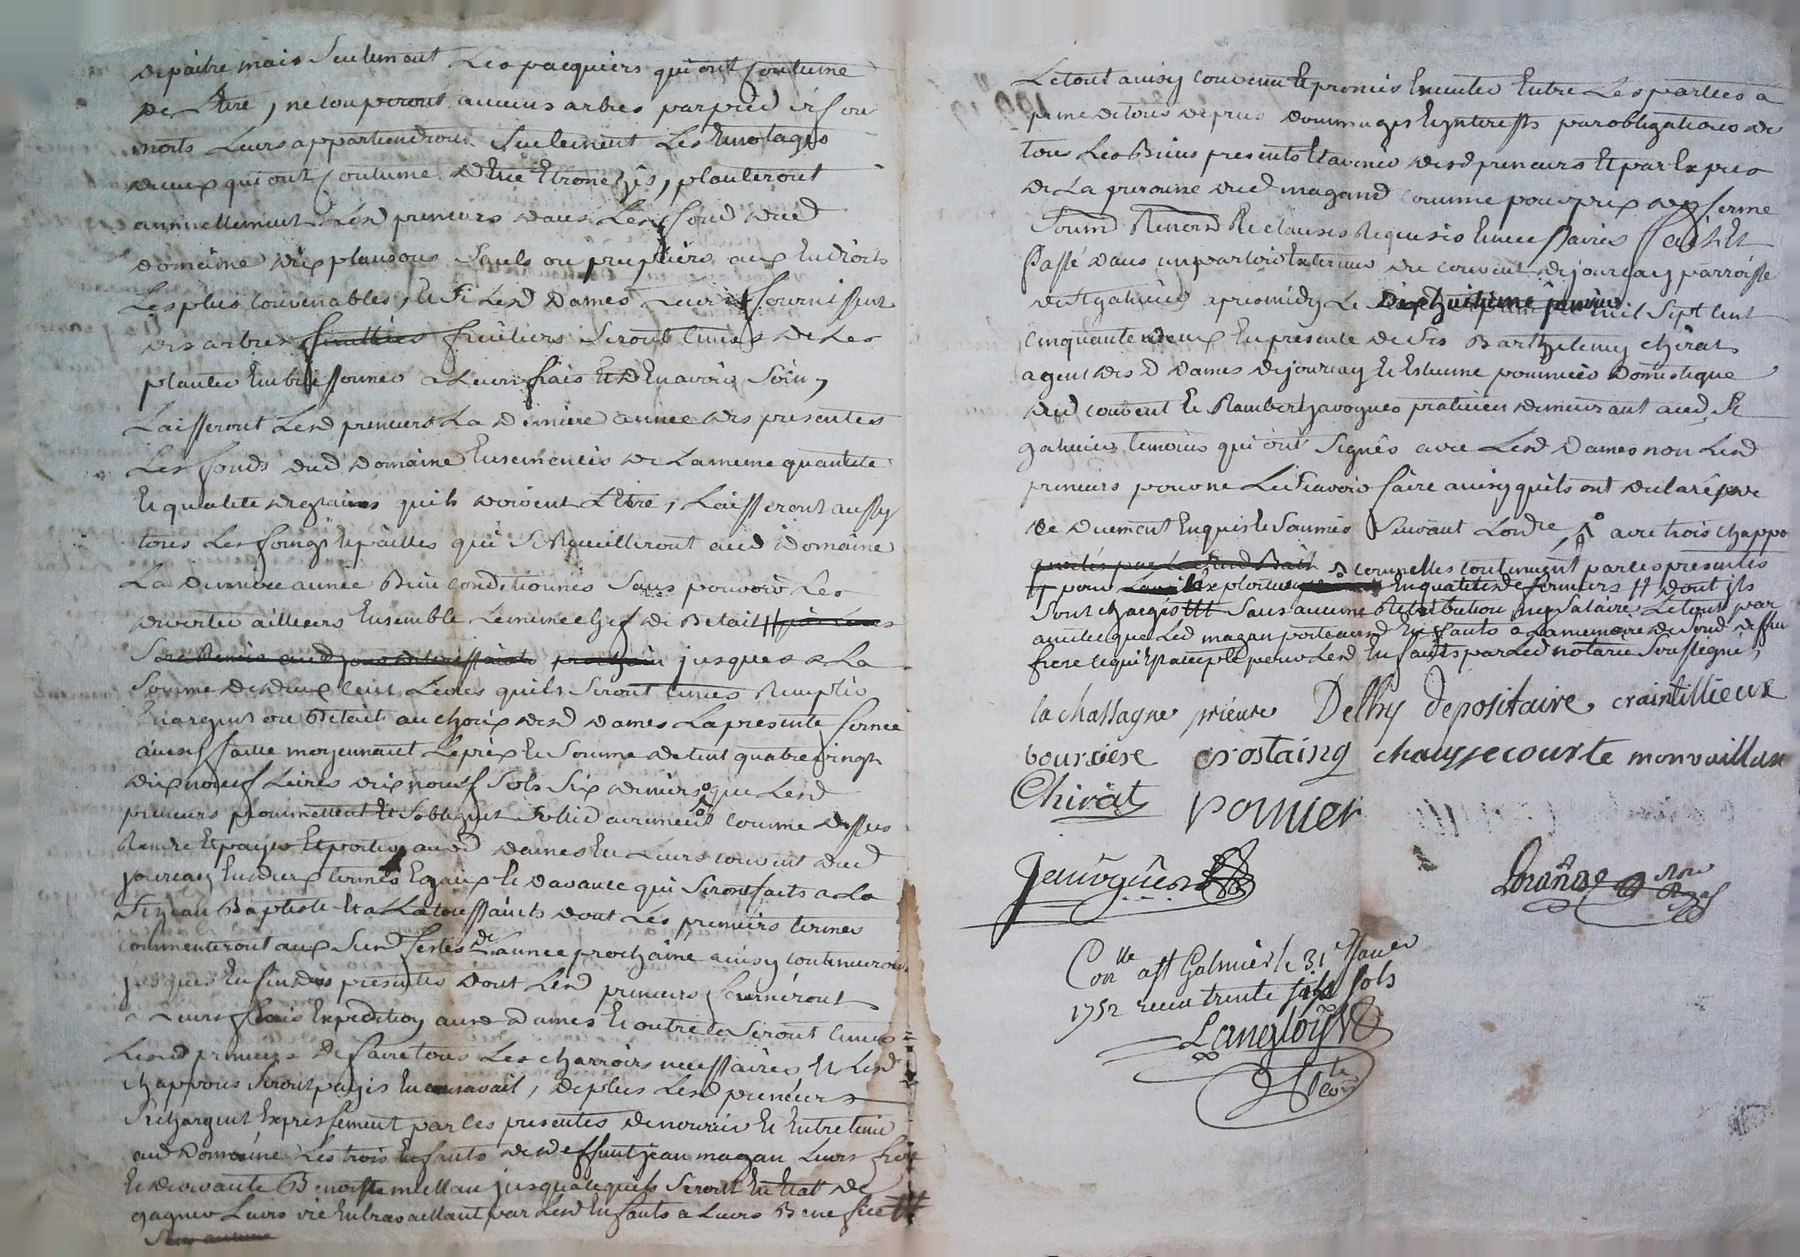 de paitre mais seulement les pacquiers qui ont coutume
de l'etre, ne couperont aucuns arbres par pied
morts leurs appartiendront seulement les emotages
de ceux qui ont coutume d'etre etronchés, planteront
annuellement lesd preneurs dans les fond dud
domaine dix plansons sauls ou pupliers aux endroits
les plus convenables, et si lesd dames leurs fournissent
des arbres fruitiers seront tenus de les
planter à leurs frais et d'en avoir soin,
Laisseront lesd preneurs la derniere année des presentes
les fonds dud domaine ensemencés de la meme quantité
et qualité de grains quils doivent l'etre, laisseront aussy
tous les foings et pailles qui se Recueilliront aud domaine
la derniere année Bien conditionnés sans pouvoir les
divertir ailleurs Ensemble le meme chef de Betail
jusques a la
somme de deux cent Livres quils seront tenus Remplir
En argent ou Betail au choix desd dames La presente ferme
ainsy faitte moyennant le prix et somme de cent quatre vingt
dix neuf Livres dix neuf sols six deniers que lesd
preneurs promettent et s'obligent sollidairement comme dessus
Rendre et payer et porter ausd dames en Leurs couvent dud
jourcey en deux termes Egaux et davance qui seront faits a la
St jean Baptiste et a la toussaints dont les premiers termes
commenceront aux susd festes de l'année prochaine ainsy continueront
jusques en fin des presentes dont lesd preneurs fourniront
a Leurs frais Expedition ausd dames et outre ce seront tenus
lesd preneurs de faire tous les charroirs necessaires et lesd
chappons seront payés en carnaval, de plus lesd preneurs
se chargent Expressement par les presentes de nourir et entretenir
aud domaine les trois enfants de deffunt jean magan leurs frere
et de vivante Benoiste jusqu'a ce quils seront en Etat de
gagner Leurs vie en travaillant par lesd Enfants a Leurs Benefice
Le tout ainsy convenu et promis Executer Entre les parties a
peine de tous depens dommages et interests par obligations de
tous les Biens presents et avenir desd preneurs et par Expres
de la personne dud magand comme pour prix de ferme
soumd Renond et clauses Requises et necessaires fait et
Passé dans un parloir Exterieur du couvent de jourcey parroisse
de St galmier apres midy le mil sept cent
cinquante deux En presence de Srs Barthelemy chirat
agent desd dames de jourcey et Estienne pommier domestique
dud couvent et Rambert javogues praticien demeurant aud St
galmier temoins qui ont signés avec lesd dames non lesd
preneurs pour ne le scavoir faire ainsy quils ont declaré
de ce duement Enquis et sommés suivant Londre, avec trois chappo
comme elles contiennent par les presentes
pour En qualites de fermiers dont ils
sont chargés sans aucune Retribution ny salaire, le tout par
amitié que led magan porte aux Enfants a la memoire de son deffun
frere ce qui Est accepté pour lesd Enfants par led notaire soussigné,
la chassagne prieure Delhy depositaire, craintillieux
boursiere crostaing chaussecourte monvaillan
Chirat pomier
Javogues
Coñlle a St Galmier le 31e Janer
1752 recu trente six sols
Langlois